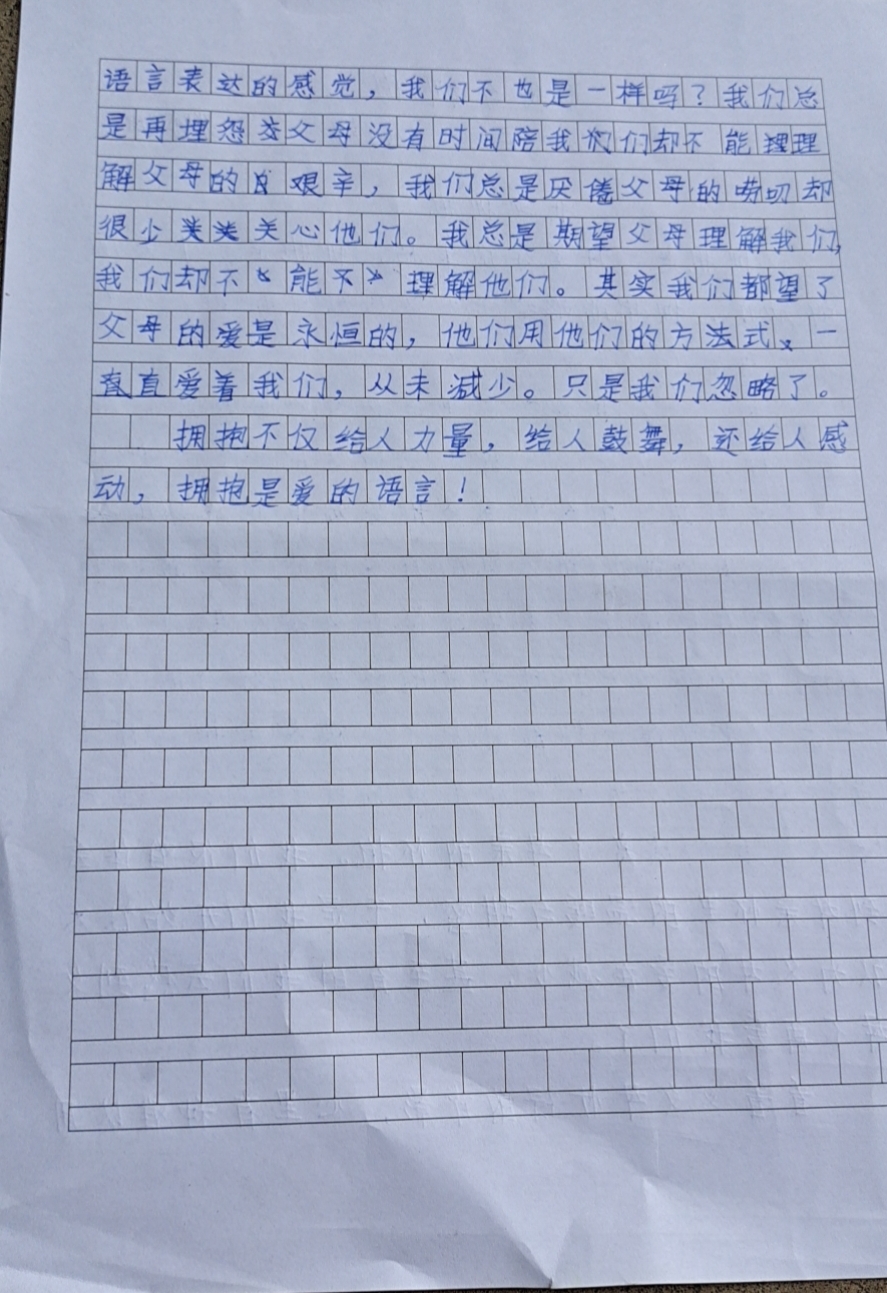 语言表达的感觉，我们不也是一样吗？我们总
是再埋怨父母没有时间陪我们却不能理
解父母的艰辛，我们总是厌倦父母的唠叨却
很少关心他们。我总是期望父母理解我们，
我们却不“能不”理解他们。其实我们都望了
父母的爱是永恒的，他们用他们的方法式、一
直直爱着我们，从未减少。只是我们忽略了。
拥抱不仅给人力量，给人鼓舞，还给人感
动，拥抱是爱的语言！